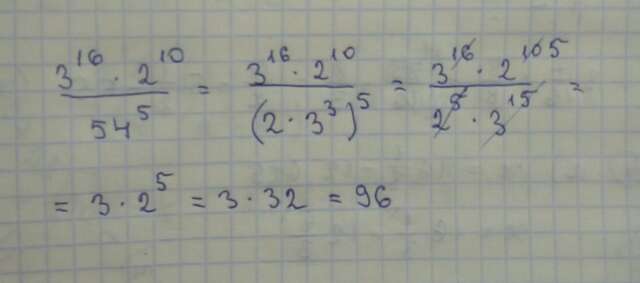 3^16 · 2^10 / 54^5 = 3^16 · 2^10 / (2 · 3^3)^5 = 3^16 · 2^10 5 / 2^5 · 3^15 =
= 3 · 2^5 = 3 · 32 = 96